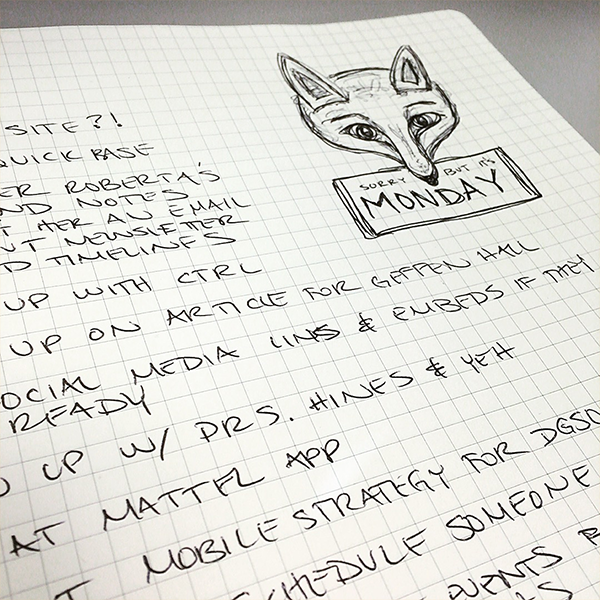 SORRY BUT IT'S
MONDAY
SITE?!
QUICK BASE
ER ROBERTA'S
ND NOTES
T HER AN EMAIL
UT NEWSLETTER
D TIMELINES
UP WITH CTRL
UP ON ARTICLE FOR GEFFEN HALL
OCIAL MEDIA LINKS & EMBEDS IF THEY
READY
UP W/ DRS. HINES & YEH
AT MATTEL APP
T MOBILE STRATEGY FOR DGSO
SCHEDULE SOMEONE
EVENTS